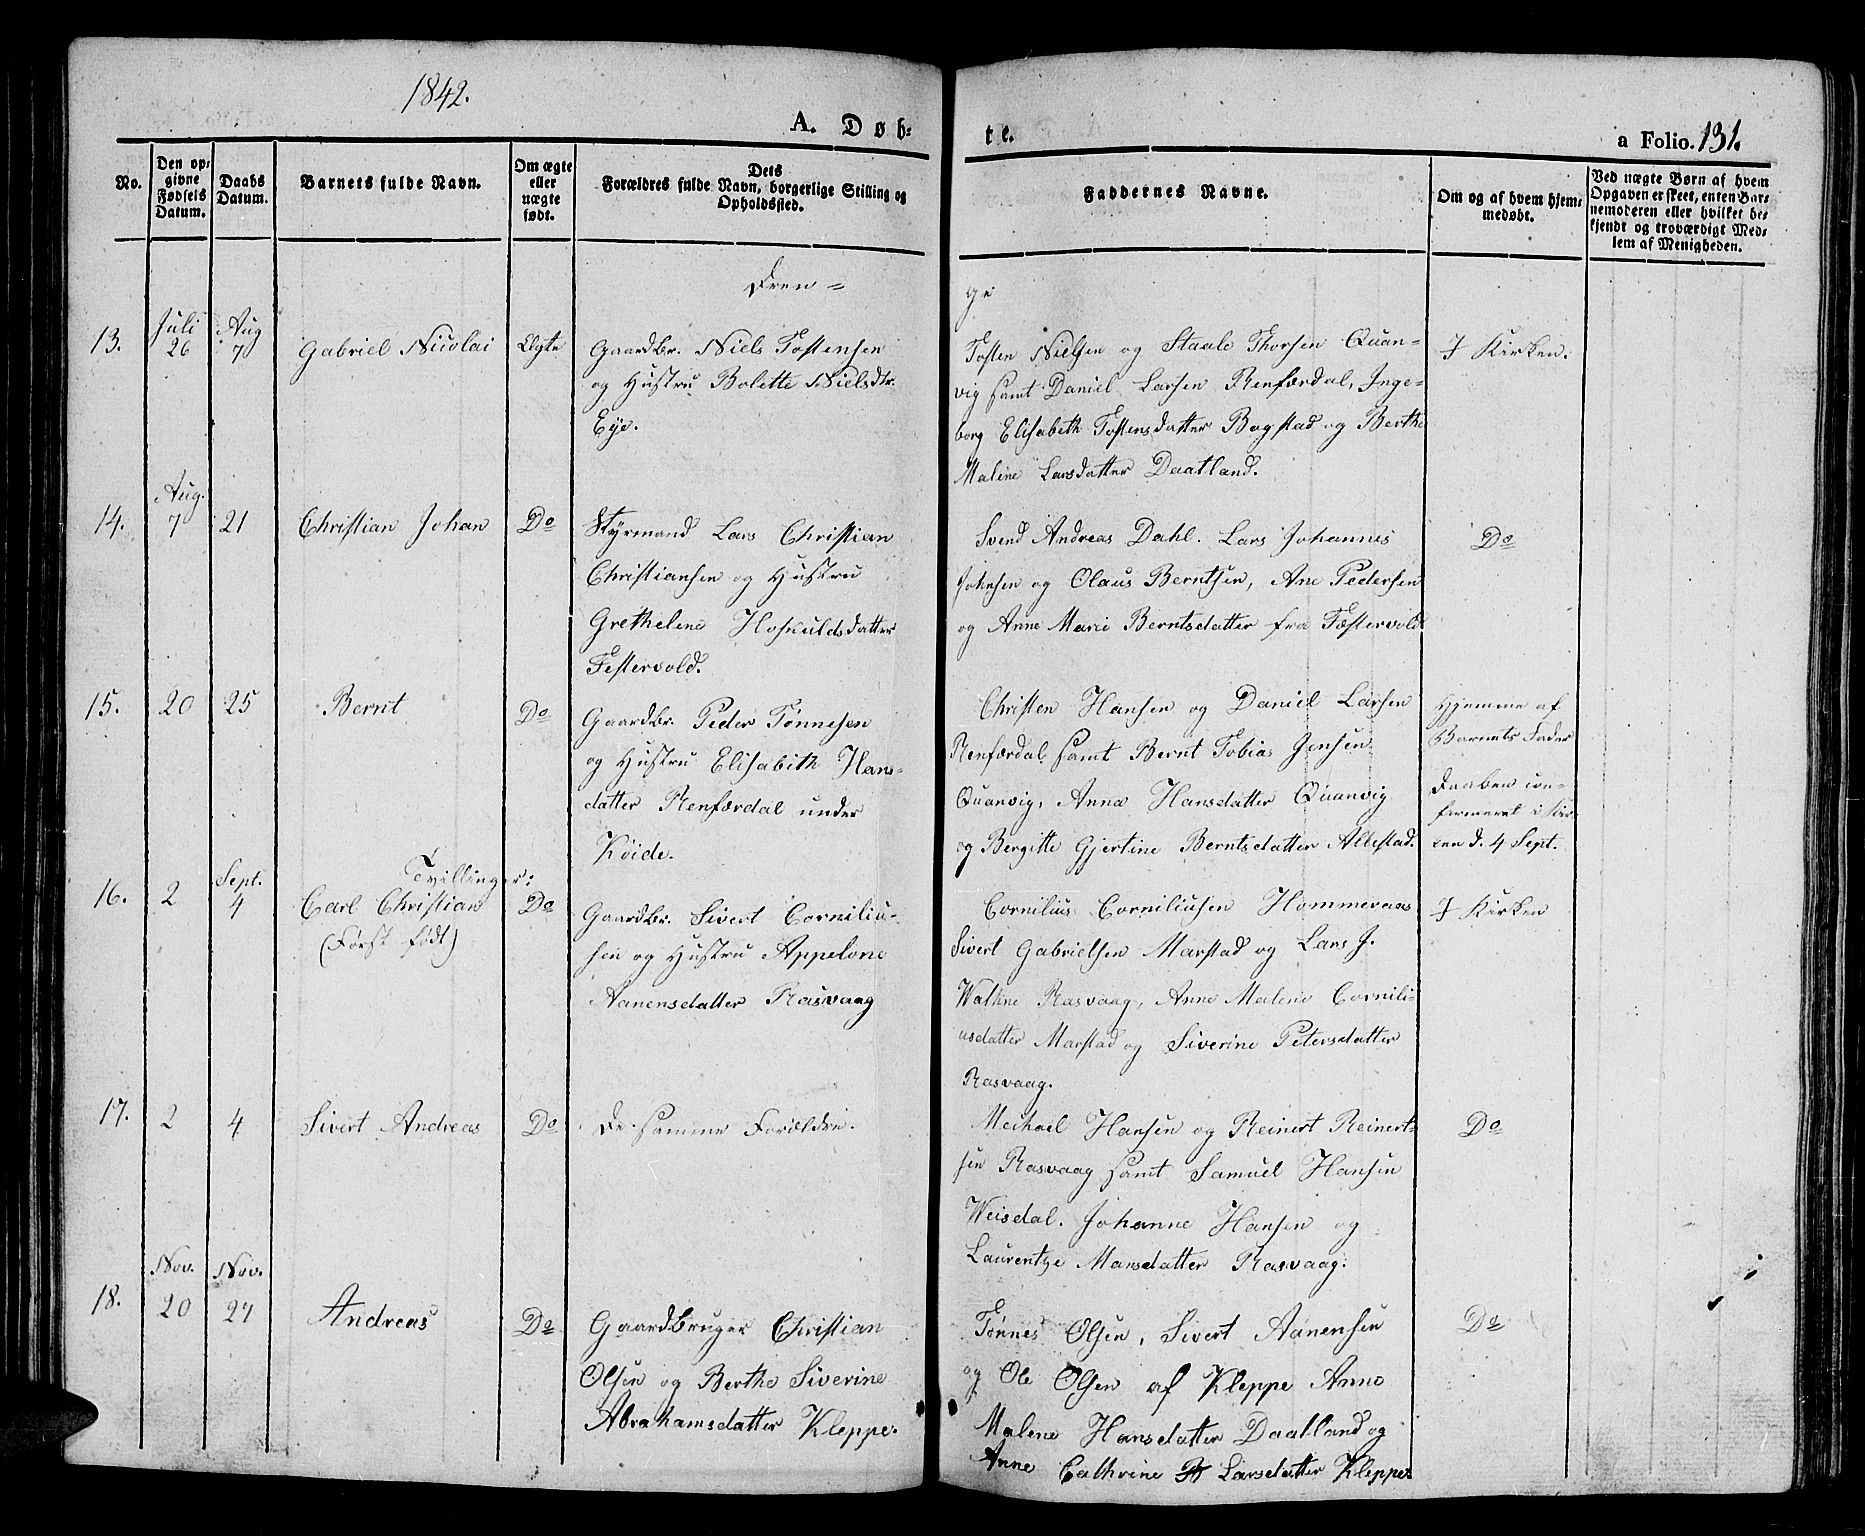 1842.
A. Døb-
te.
a Folio. 131.
No.
Den op-
givne
Fødsels
Datum.
Daabs
Datum.
Barnets fulde Navn.
Om ægte
eller
uægte
født.
Dets
Forældres fulde Navn, borgerlige Stilling og
Opholdssted.
Faddernes Navne.
Om og af hvem hjem-
medøbt.
Ved uægte Børn af hvem
Opgaven er skeet, enten Bar-
nemoderen eller hvilket be-
kjendt og troværdigt Med-
lem af Menigheden.
Dren-
ge
13.
Juli
26
Aug
7
Gabriel Nicolai
Ægte
Gaardbr. Niels Tostensen
og Hustru Bolette Nielsdtr.
Eye.
Tosten Nielsen og Staale Thorsen Quan-
vig samt Daniel Larsen Renfærdal, Inge-
borg Elisabeth Tostensdatter Bogstad og Berthe
Maline Larsdatter Daatland.
I Kirken.
14.
Aug.
7
21
Christian Johan
Do
Styrmand Lars Christian
Christiansen og Hustru
Grethelene Hoskuldsdatter
Festervold.
Svend Andreas Dahl. Lars Johannes
Johnsen og Olaus Berntsen, Ane Pedersen
og Anne Marie Berntsdatter fra Festervold
Do
15.
20
25
Bernt
Do
Gaardbr. Peder Tønnesen
og Hustru Elisabeth Hans-
datter Renfærdal under
Køide.
Christen Hansen og Daniel Larsen
Renfærdal samt Bernt Tobias Jensen
Quanvig, Anna Hansdatter Quanvig
og Bergitte Gjertine Berntsdatter Allestad.
Hjemme af
Barnets Fader
Daaben con-
firmeret i Kir-
ken d. 4 Sept.
Tvillinger:
16.
2
Sept.
4
Carl Christian
(Først født)
Do
Gaardbr. Sivert Corniliu-
sen og Hustru Appelone
Aanensdatter Rasvaag
Cornilius Corniliusen Hommevaas
Sivert Gabrielsen Marstad og Lars J.
Wathne Rasvaag, Anne Malene Cornili-
usdatter Marstad og Siverine Petersdatter
Rasvaag.
I Kirken
17.
2
4
Sivert Andreas
Do
De samme Forældre.
Michael Hansen og Reinert Reinert-
sen Rasvaag samt Samuel Hansen
Weisdal. Johanne Hansen og
Laurentze Mansdatter Rasvaag.
Do
18.
Nov.
20
Nov.
27
Andreas
Do
Gaardbruger Christian
Olsen og Berthe Siverine
Abrahamsdatter Kleppe.
Tønnes Olsen, Sivert Aanensen
og Ole Olsen af Kleppe Anne
Malene Hansdatter Daatland og
Anne Cathrine Larsdatter Kleppe.
Do